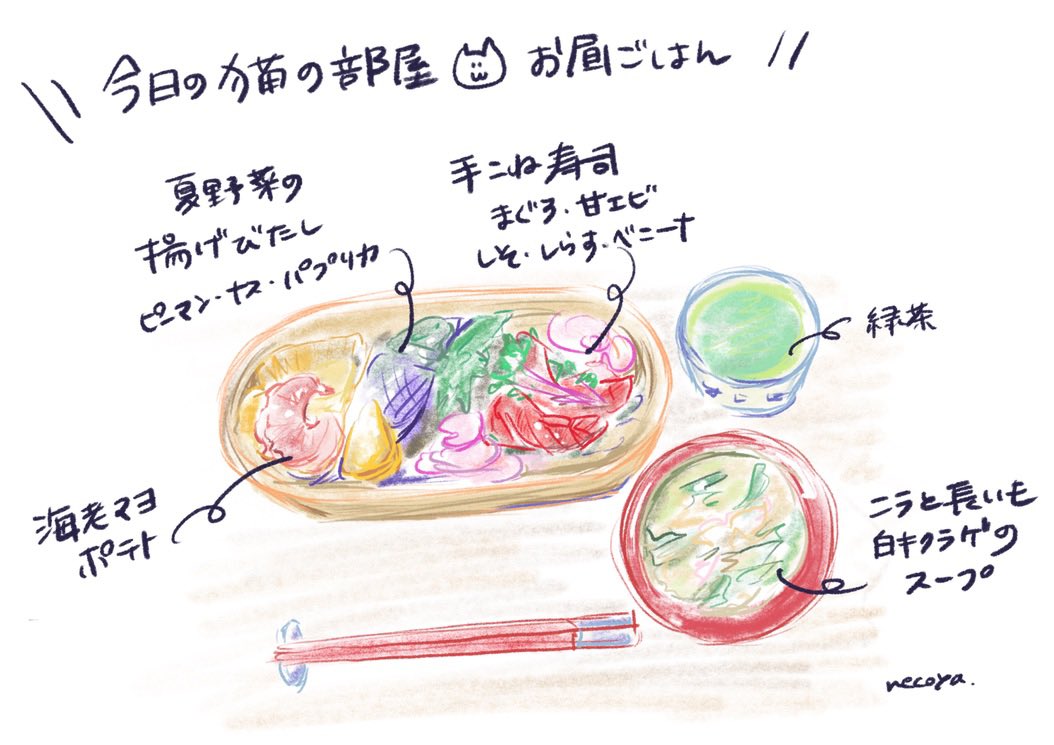 今日の猫の部屋 お昼ごはん
夏野菜の
揚げびたし
ピーマン・ナス・パプリカ
手こね寿司
まぐろ・甘エビ
しそ・しらす・ベニータ
緑茶
海老マヨ
ポテト
ニラと長いも
白キクラゲの
スープ
necoya.